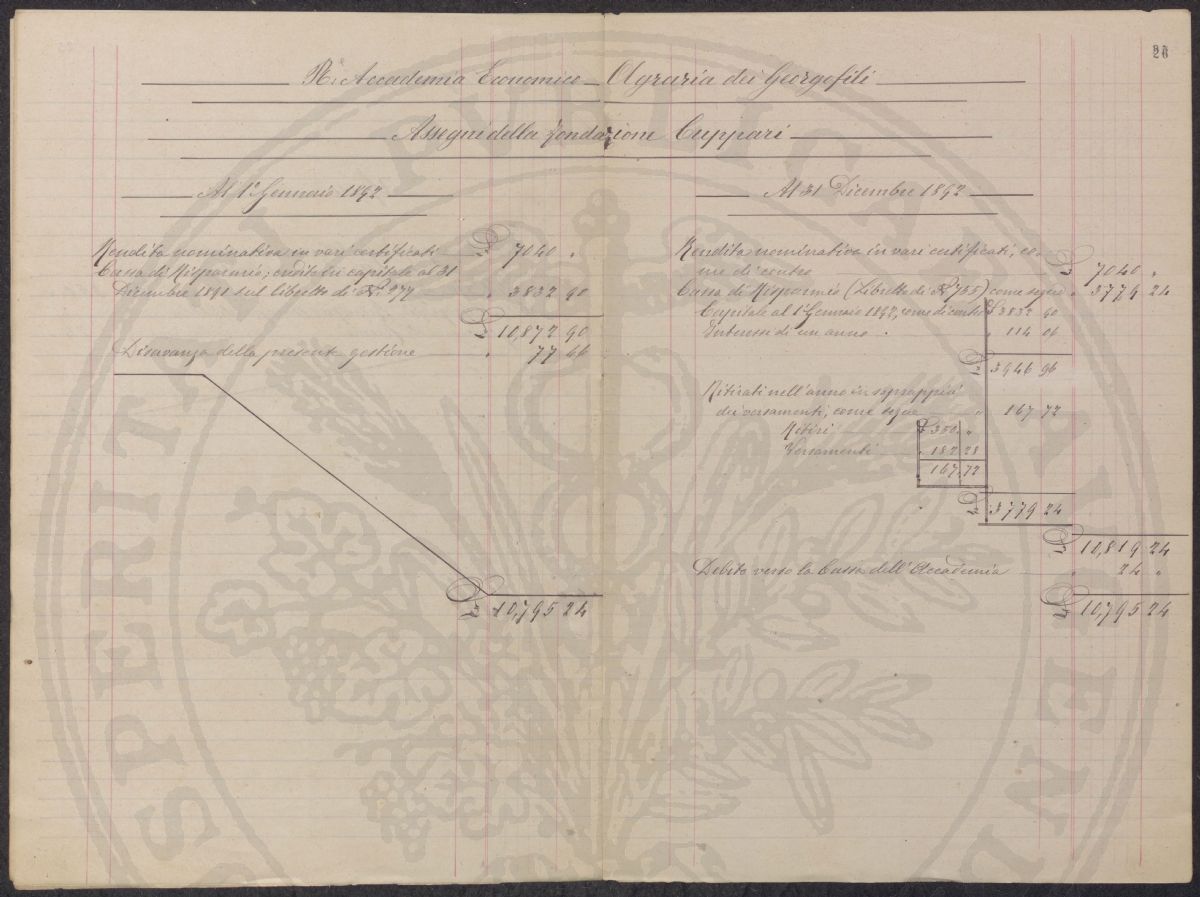 26
R. Accademia Economico Agraria dei Georgofili
Assegni della fondazione Cuppari
Al 1° Gennaio 1892
Rendita nominativa in vari certificati £ 7040 "
Cassa di Risparmio, credito in capitale al 31
Dicembre 1891 sul libretto di N. 977 " 3832 90
£ 10,872 90
Disavanzo della presente gestione " 77 66
£ 10,795 24
Al 31 Dicembre 1892
Rendita nominativa in vari certificati, co-
me di contro £ 7040 "
Cassa di Risparmio (Libretto di N. 755) come segue " 3779 24
Capitale al 1° Gennaio 1892, come di contro £ 3832 90
Interessi di un anno " 114 06
£ 3946 96
Ritirati nell'anno in soprappiù
dei versamenti, come segue " 167 72
Ritiri £ 350 "
Versamenti " 182 28
167,72
£ 3779 24
£ 10,819 24
Debito verso la Cassa dell'Accademia " 24 "
£ 10,795 24
PROSPERITATI PUBLICAE AUGENDAE